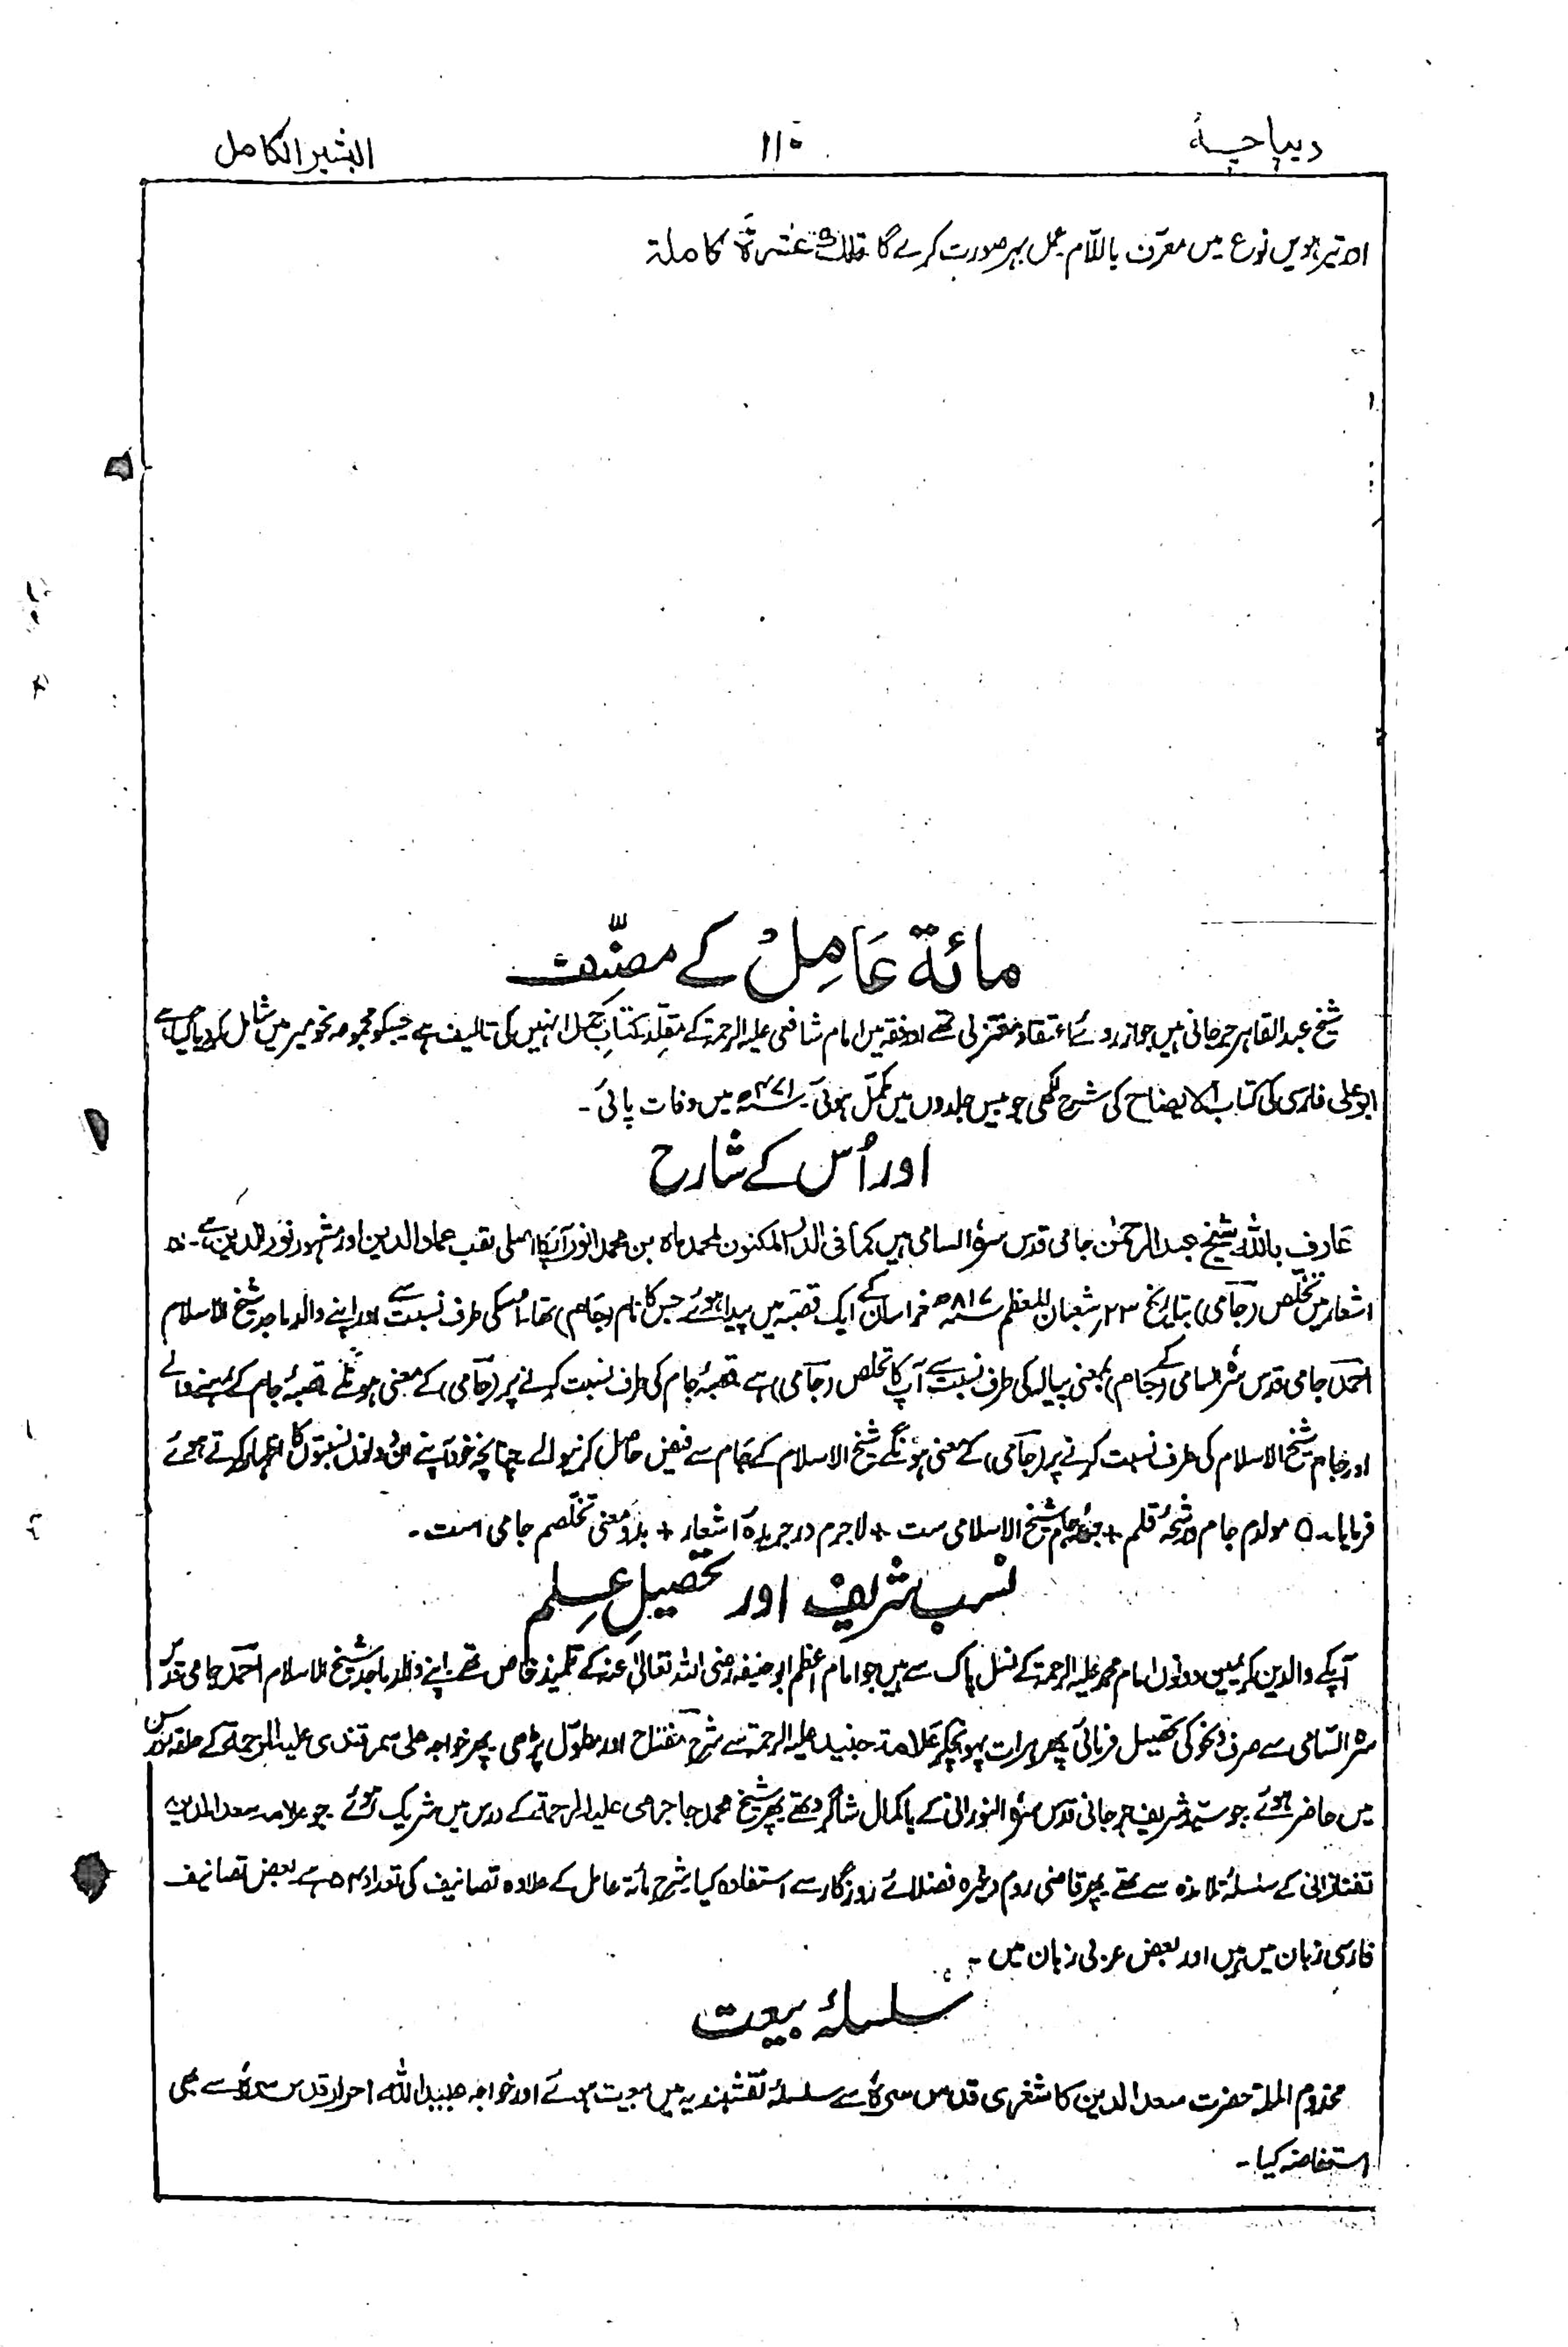 دیباچہ
۱۱۰
البشیر الکامل
اور تیرہویں نوع میں معرّف باللّام عمل بہر صورت کرے گا تلک عَشَرَۃٌ کاملۃ
مائۃ عَامِلْ کے مصنّف
شیخ عبدالقاہر جرجانی ہیں جو ازروئے اعتقاد معتزلی تھے اور فقہ میں امام شافعی علیہ الرحمۃ کے مقلّد کتابِ جُمل انہیں کی تالیف ہے جسکو مجموعہ نحومیر میں شامل کر دیا گیا ہے
ابو علی فارسی کی کتاب الایضاح کی شرح لکھی جو بیس جلدوں میں مکمّل ہوئی۔ ۴۷۱ھ میں وفات پائی۔
اور اُس کے شارح
عَارف باللہ شیخ عبدالرحمٰن جامی قدس سرہٗ السامی ہیں کما فی الدر المکنون لمحمد ماہ بن محمد انور آپ کا اصلی لقب عماد الدین اور مشہور نور الدین ہے۔
اشعار میں تخلّص (جَامی) بتاریخ ۲۳ رشعبان المعظم ۸۱۷ھ خراسان کے ایک قصبہ میں پیدا ہوئے جس کا نام (جَام) تھا۔ اُسکی طرف نسبت سے اور اپنے والد ماجد شیخ الاسلام
احمد جامی قدس سرہ السامی کے (جَام) بمعنی پیالہ کی طرف نسبت سے آپ کا تخلص (جَامی) ہے قصبۂ جام کی طرف نسبت کرنے پر (جَامی) کے معنی ہونگے قصبۂ جام کے رہنے والے
اور جام شیخ الاسلام کی طرف نسبت کرنے پر (جَامی) کے معنی ہونگے شیخ الاسلام کے جَام سے فیض حاصل کرنیوالے چنانچہ خود آپنے ان دونوں نسبتوں کا اظہار کرتے ہوئے
فرمایا۔ ؎ مولدم جام و رشحۂ قلم + جرعۂ جام شیخ الاسلامی ست + لاجرم در جریدۂ اشعار + بدو معنی تخلّصم جامی است۔
نسب شریف اور تحصیلِ عِلم
آپکے والدین کریمین دونوں امام محمد علیہ الرحمۃ کے نسل پاک سے ہیں جو امام اعظم ابو حنیفہ رضی اللہ تعالیٰ عنہ کے تلمیذ خاص تھے۔ اپنے والد ماجد شیخ الاسلام احمد جامی قدس
سرہ السّامی سے صرف و نحو کی تحصیل فرمائی پھر ہرات پہونچکر عَلامۃ جنید علیہ الرحمۃ سے شرح مفتاح اور مطوّل پڑھی پھر خواجہ علی سمرقندی علیہ الرحمۃ کے حلقہ درس
میں حاضر ہوئے جو سیّد شریف جرجانی قدس سرہٗ النورانی کے باکمال شاگرد تھے پھر شیخ محمد جاجرمی علیہ الرحمۃ کے درس میں شریک ہوئے جو علامہ سعد الدین
تفتازانی کے سلسلۂ تلامذہ سے تھے پھر قاضی روم وغیرہ فضلائے روزگار سے استفادہ کیا۔ شرح مائۃ عامل کے علاوہ تصانیف کی تعداد ۵۴ ہے بعض تصانیف
فارسی زبان میں ہیں اور بعض عربی زبان میں۔
سلسلۂ بیعت
مخدوم الملۃ حضرت سعد الدین کاشغری قدس سرہٗ سے سلسلۂ نقشبندیہ میں بیعت ہوئے اور خواجہ عبیداللہ احرار قدس سرہٗ سے بھی
استفاضہ کیا۔